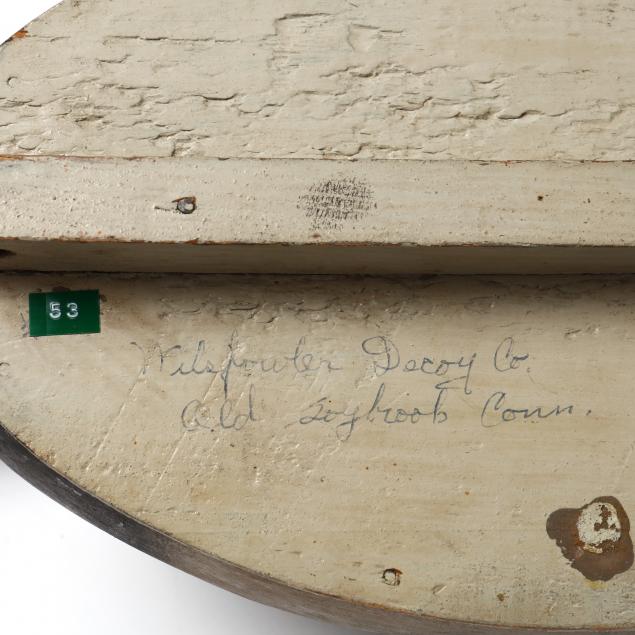 53
Wilsfowler Decoy Co.
Old Soybrook Conn.